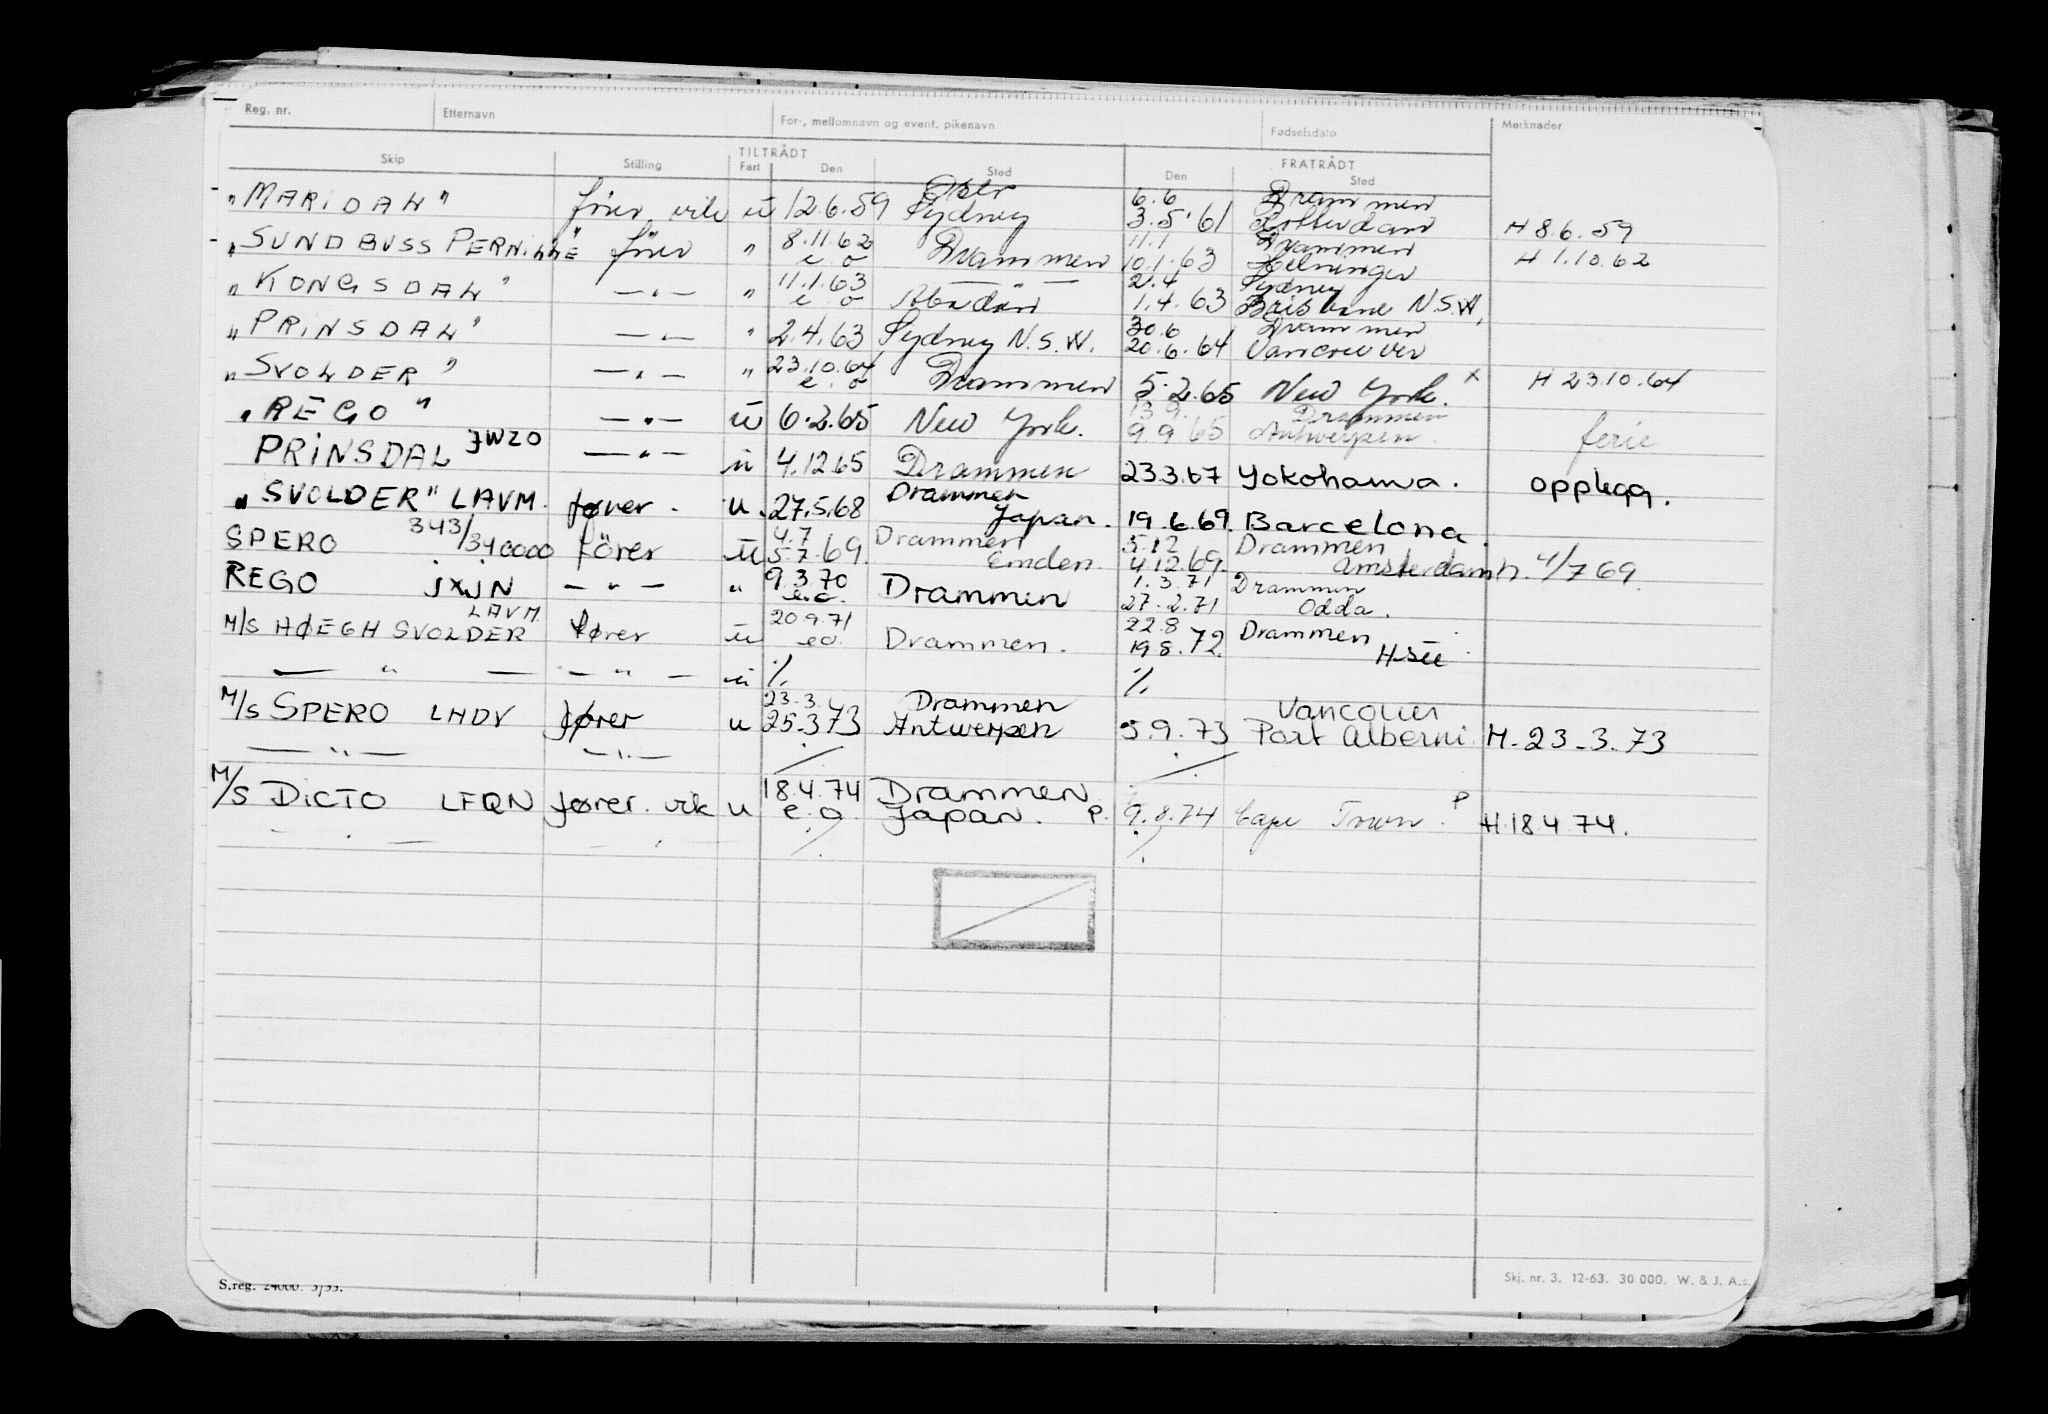 Reg. nr. Etternavn For-, mellomnavn og event. pikenavn Fødselsdato Merknader
TILTRÅDT FRATRÅDT
Skip Stilling Fart Den Sted Den Sted
Oslo 6.6 Drammen
"MARIDAL" fører vik ū 12.6.59 Sydney 3.5.61 Rotterdam H 8.6.59
8.11.62 11.1 Drammen
"SUNDBUSS PERNILLE" fører " e.o Drammen 10.1.63 Helsingør H 1.10.62
11.1.63 — " — 21.4 Sydney
"KONGSDAL" — " — " e.o Abadan 1.4.63 Brisbane N.S.W.
30.6 Drammen
"PRINSDAL" — " — " 2.4.63 Sydney N.S.W. 20.6.64 Vancouver
23.10.64
"SVOLDER" — " — " e.o Drammen 5.2.65 New York. x H 23.10.64
13.9. Drammen
"REGO" — " — ū 6.2.65 New York. 9.9.65 Antwerpen. ferie
PRINSDAL JWZO — " — ū 4.12.65 Drammen 23.3.67 Yokohama. opplegg.
Drammen
"SVOLDER" LAVM. fører. u. 27.5.68 Japan. 19.6.69. Barcelona.
343/ 4.7 Drammen 5.12 Drammen
SPERO 340000 förer ū 5.7.69. Emden. 4.12.69. Amsterdam h. 4/7 69.
9.3.70 1.3.71 Drammen
REGO jxjN — " — " e.o. Drammen 27.2.71 Odda.
LAVM. 20.9.71 22.8 Drammen
M/S HØEGH SVOLDER fører ū eo. Drammen. 19.8.72.
— " — — " — ū ⁒ ⁒
23.3. Drammen Vancouver
M/S SPERO LHDV fører u 25.3.73 Antwerpen 5.9.73 Port Alberni H. 23.3.73
— " — — " — ⁒ ⁒
18.4.74 Drammen
M/S DICTO LFQN fører. vik u e.o. Japan. P. 9.8.74 Cape Town. P H.18.4.74.
— " — — " — ⁒ ⁒
S.reg. 24000. 5/55. Skj. nr. 3. 12-63. 30 000. W. & J. A.s.